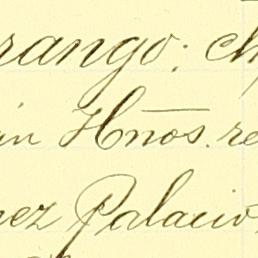 rango: ch
in Hños. re
nez Palacio,